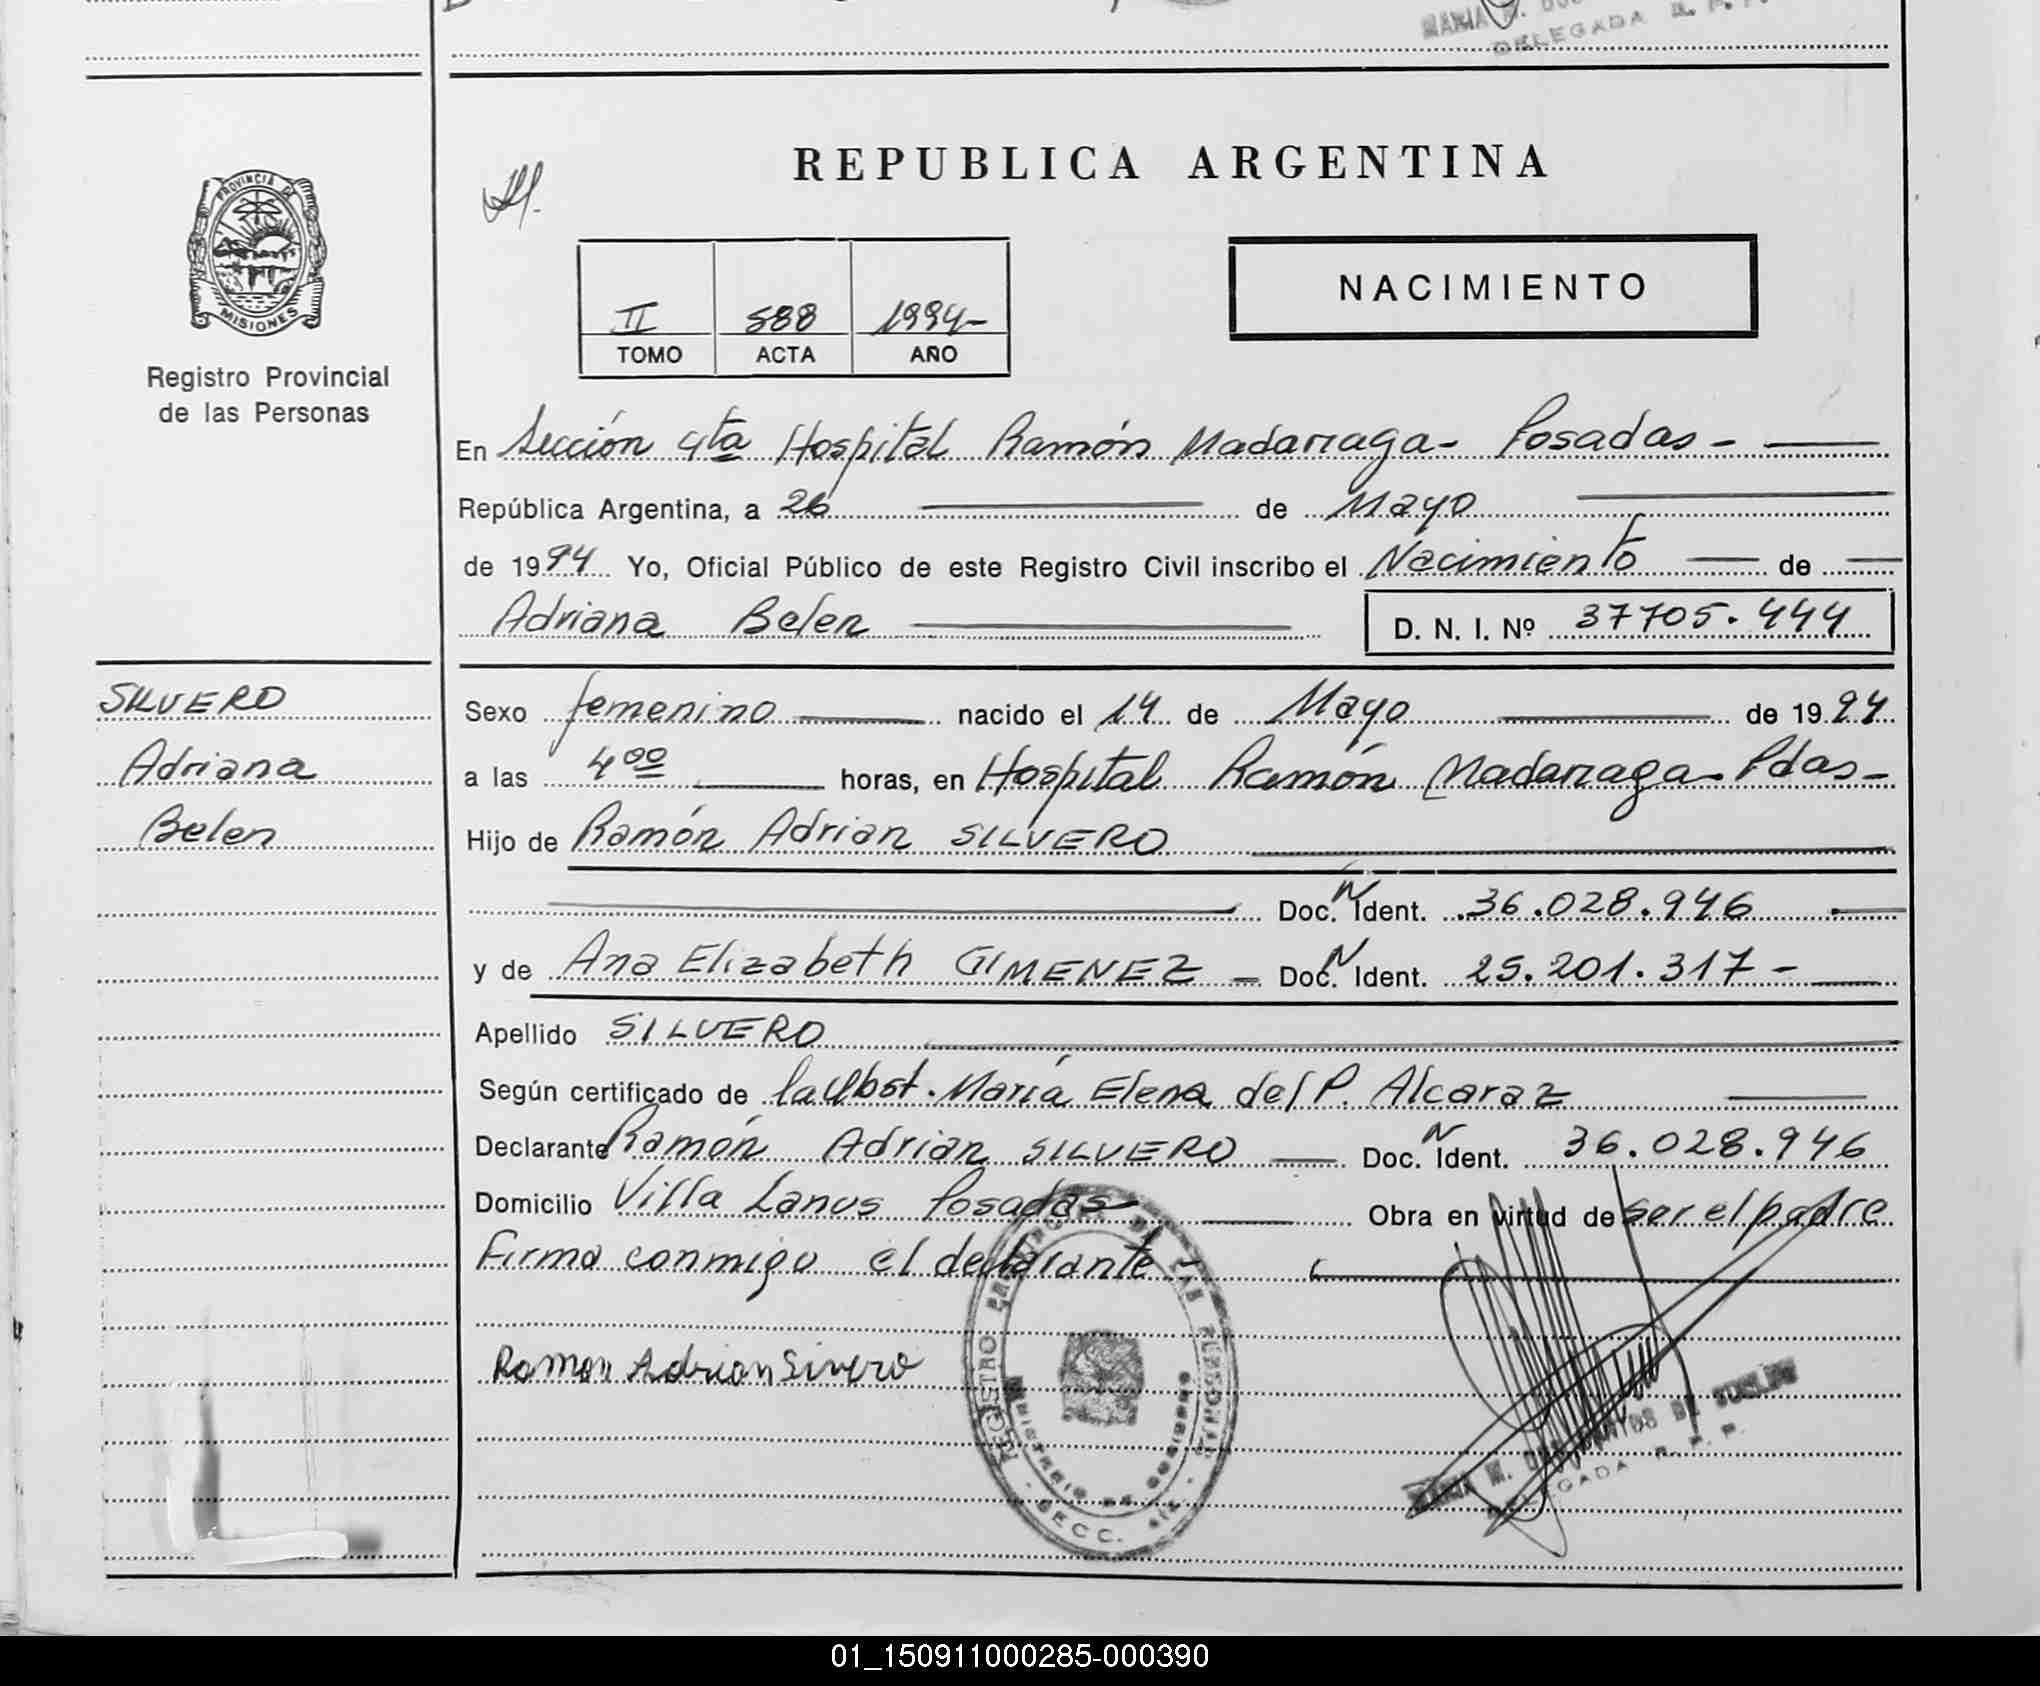 DELEGADA R. P. P.
REPUBLICA ARGENTINA
PROVINCIA DE
MISIONES
Registro Provincial
de las Personas
II 588 1994-
TOMO ACTA AÑO
NACIMIENTO
En Sección 4ta Hospital Ramón Madariaga- Posadas-
República Argentina, a 26 de Mayo
de 1994 Yo, Oficial Público de este Registro Civil inscribo el Nacimiento de
Adriana Belen D. N. I. Nº 37705.444
SILVERO
Adriana
Belen
Sexo femenino nacido el 14 de Mayo de 1994
a las 4 00 horas, en Hospital Ramón Madariaga- Pdas-
Hijo de Ramón Adrian SILVERO
Doc. N Ident. 36.028.946
y de Ana Elizabeth GIMENEZ - Doc. N Ident. 25.201.317-
Apellido SILVERO
Según certificado de la Obst. María Elena del P. Alcaraz
Declarante Ramón Adrian SILVERO Doc. N Ident. 36.028.946
Domicilio Villa Lanus Posadas- Obra en virtud de ser el padre
Firma conmigo el declarante-
Ramon Adrian Sivero
REGISTRO PROVINCIAL DE LAS PERSONAS
MINISTERIO DE GOBIERNO
SECC. 4ta
DELEGADA R. P. P.
01_150911000285-000390